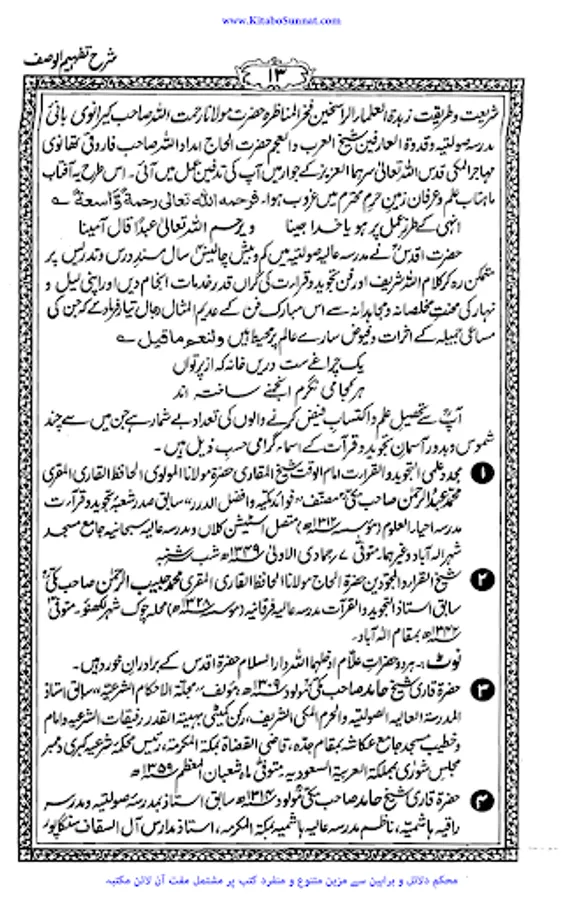 www.KitaboSunnat.com
شرح تفہیم الوصف
۱۳
شریعت و طریقت زبدۃ العلماء الراسخین فخر المناظرہ حضرت مولانا رحمت اللہ صاحب کیرانوی بانیٔ
مدرسہ صولتیہ و قدوۃ العارفین شیخ العرب و العجم حضرت الحاج امداد اللہ صاحب فاروقی تھانوی
مہاجر المکی قدس اللہ تعالیٰ سرہما العزیز کے جوار میں آپ کی تدفین عمل میں آئی۔ اس طرح یہ آفتاب
ماہتاب علم و عرفان زمین حرم محترم میں غروب ہوا۔ فرحمہ اللہ تعالیٰ رحمۃ واسعۃ ؎
انہی کے طرز عمل پر ہو یا خدا جینا ویرحم اللہ تعالیٰ عبدًا قال آمینا
حضرت اقدسؒ نے مدرسہ عالیہ صولتیہ میں کم و بیش چالیس سال مسند درس و تدریس پر
متمکن رہ کر کلام اللہ شریف اور فن تجوید و قراءت کی گراں قدر خدمات انجام دیں اور اپنی لیل و
نہار کی محنت مخلصانہ و مجاہدانہ سے اس مبارک فن کے عدیم المثال رجال تیار فرمادئے کہ جن کی
مساعی جمیلہ کے اثرات و فیوض سارے عالم پر محیط ہیں ولنعم ما قیل ؎
یک چراغے ست دریں خانہ کہ از پرتو آں
ہر کجا می نگرم انجمنے ساختہ اند
آپؒ سے تحصیل علم و اکتساب فیض کرنے والوں کی تعداد بے شمار ہے جن میں سے چند
شموس و بدور آسمان تجوید و قرآت کے اسماء گرامی حسب ذیل ہیں۔
۱ مجدد علمی التجوید و القراءت امام الوقت شیخ المقاری حضرۃ مولانا المولوی الحافظ القاری المقری
محمد عبدالرحمٰن صاحب مکیؒ مصنف "فوائد مکیہ و افضل الدرر" سابق صدر شعبۂ تجوید و قراءت
مدرسہ احیاء العلوم (مؤسسہ ۱۳۱۲ھ) متصل اسٹیشن کلاں و مدرسہ عالیہ سبحانیہ جامع مسجد
شہر الہ آباد وغیرہما۔ متوفی ۷ رجمادی الاولیٰ ۱۳۴۹ھ شب شنبہ
۲ شیخ القراء و المجودین حضرۃ الحاج مولانا الحافظ القاری المقری محمد حبیب الرحمٰن صاحب مکیؒ
سابق استاذ التجوید و القرآت مدرسہ عالیہ فرقانیہ (مؤسسہ ۱۳۲۸ھ) محلہ چوک شہر لکھنؤ۔ متوفیٰ
بمقام الہ آباد۔
نوٹ:۔ ہر دو حضرات علّام ادخلہما اللہ دار السلام حضرۃ اقدس کے برادران خورد ہیں۔
۳ حضرۃ قاری شیخ حامد صاحب مکیؒ مولود ۱۳۰۹ھ مؤلف "مجلۃ الاحکام الشرعیۃ" سابق استاذ
المدرسۃ العالیہ الصولتیہ و الحرم المکی الشریف، رکن کمیٹی بہیئتہ القدر رفیقات الشرعیہ و امام
و خطیب مسجد جامع عکاشہ بمقام جدہ، قاضی القضاۃ بمکۃ المکرمۃ، رئیس محکمۂ شرعیہ کبریٰ و ممبر
مجلس شوریٰ بمملکۃ العربیۃ السعودیہ متوفی ماہ شعبان المعظم ۱۳۵۹ھ
۴ حضرۃ قاری شیخ حامد صاحب مکیؒ مولود ۱۳۱۴ھ سابق استاذ مدرسہ صولتیہ و مدرسہ
راقیہ ہاشمیۃ، ناظم مدرسہ عالیہ ہاشمیہ بمکۃ المکرمہ، استاذ مدارس آل السقاف سنگاپور
محکم دلائل و براہین سے مزین متنوع و منفرد کتب پر مشتمل مفت آن لائن مکتبہ